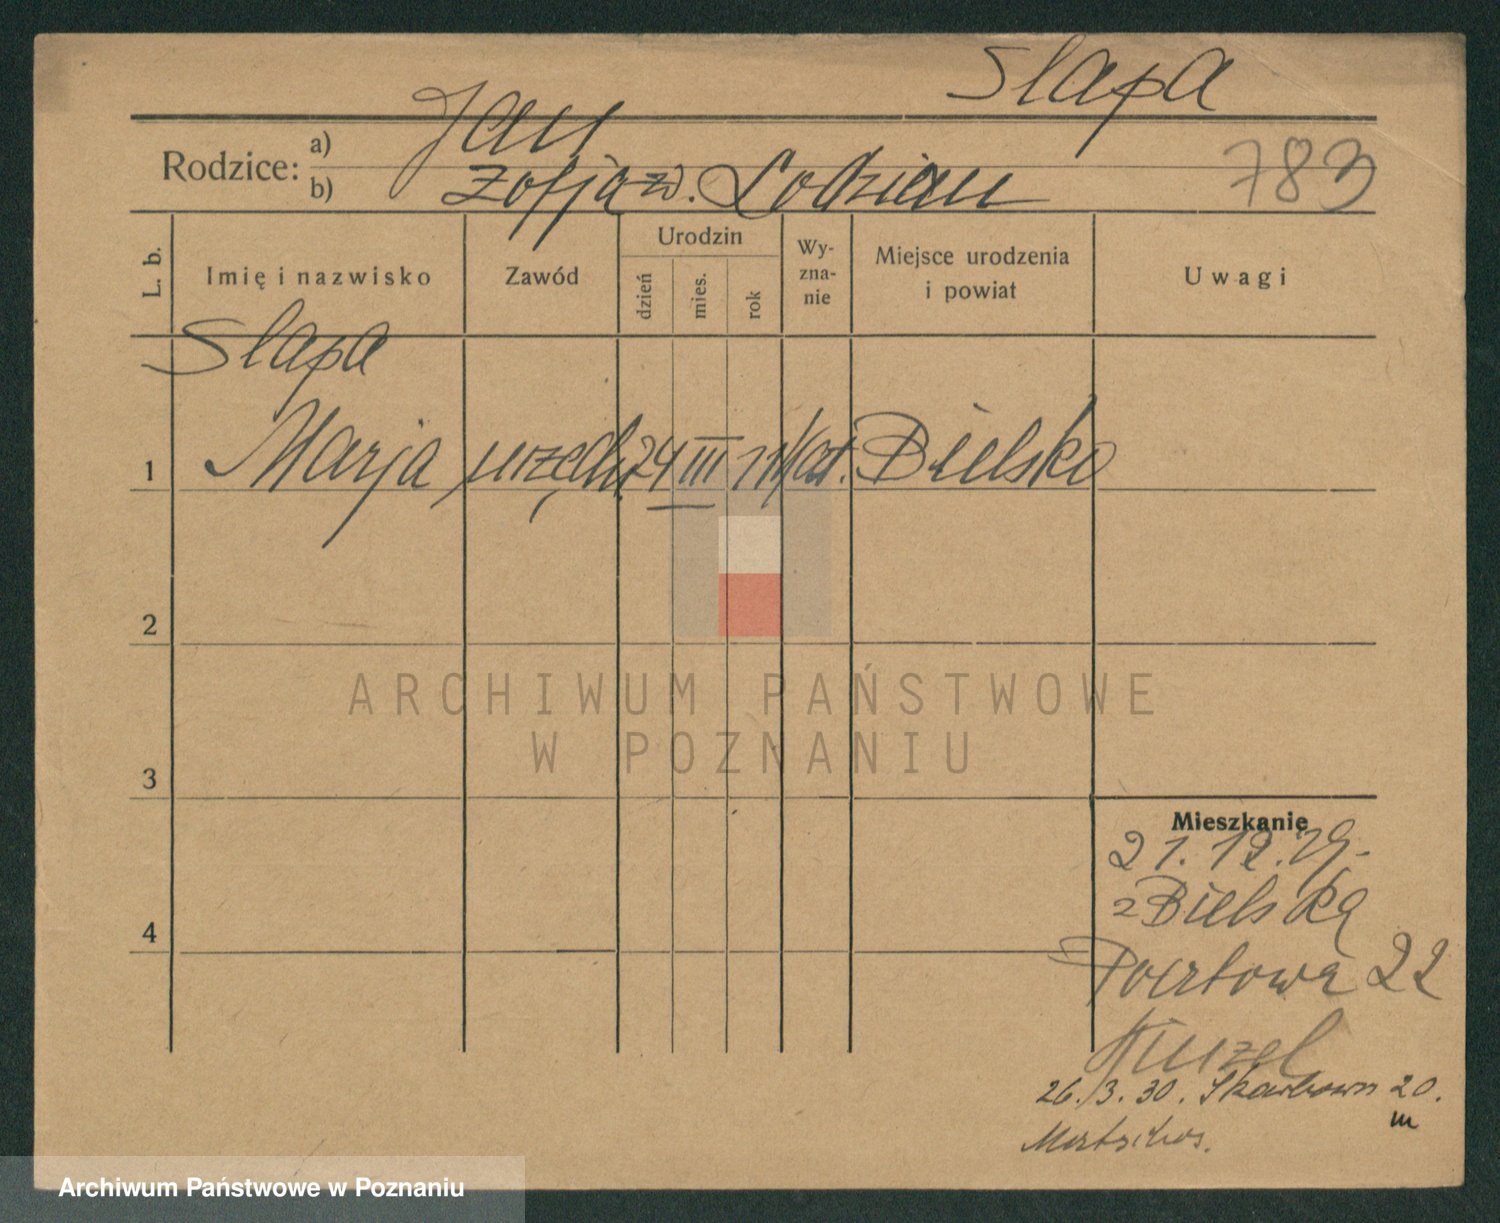 Slapa
Jan
Rodzice: a)
b) Zofja zd. Lodzian
783
L. b.
Imię i nazwisko
Zawód
Urodzin
dzień
mies.
rok
Wy-
zna-
nie
Miejsce urodzenia
i powiat
Uwagi
Slapa
1 Marja urzędn. 24 III 11 kat. Bielsko
2
ARCHIWUM PAŃSTWOWE
W POZNANIU
3
Mieszkanie
21.12.29.
z Bielska
4
Pocztowa 22
26./3. 30. Skarbowa 20.
III
Archiwum Państwowe w Poznaniu